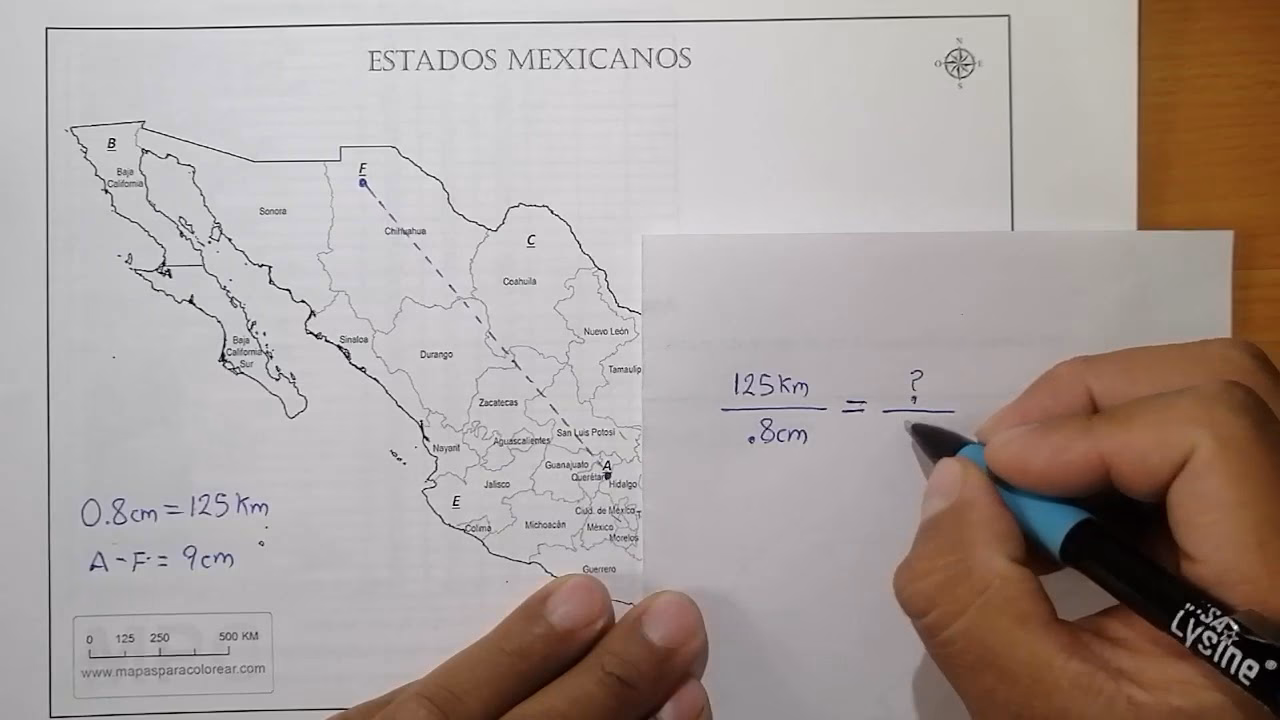 ESTADOS MEXICANOS
N
O E
S
B
Baja
California
Sonora
F
Chihuahua
C
Coahuila
Nuevo León
Tamaulip
Baja
California
Sur
Sinaloa
Durango
Zacatecas
San Luis Potosí
Nayarit
Aguascalientes
Guanajuato
A
Querétar
Hidalgo
Jalisco
E
Colima
Michoacán
Ciud. de México
México
Morelos
Guerrero
0.8cm = 125 Km
A - F = 9cm
0 125 250 500 KM
www.mapasparacolorear.com
125 Km = ?
.8cm
Lysine